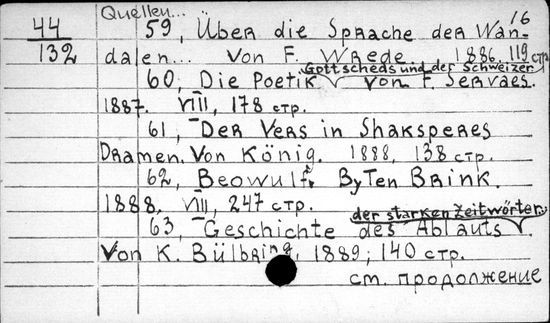 Quellen... 16
44 59, Über die Sprache der Wan-
132 dalen... Von F. Wrede 1886. 119 стр
Gottscheds und der Schweizer
60, Die Poetik von F. Servaes.
1887. VIII, 178 стр.
61, Der Vers in Shaksperes
Dramen. Von König. 1888, 138 стр.
62, Beowulf. By Ten Brink.
1888. VIII, 247 стр.
der starken Zeitwörter
63, Geschichte des Ablauts
Von K. Bülbring, 1889; 140 стр.
см. продолжение